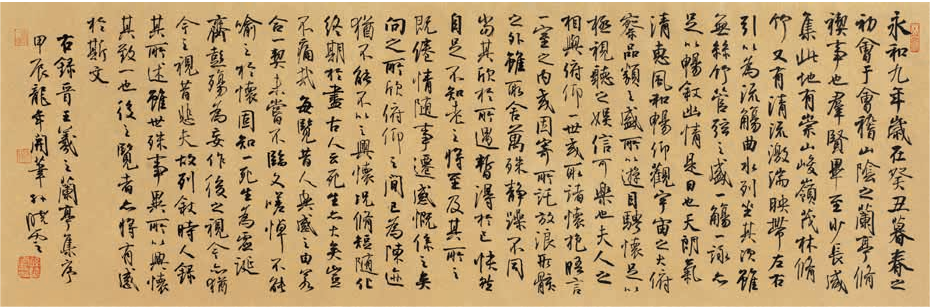 永和九年歲在癸丑暮春之
初會于會稽山陰之蘭亭脩
禊事也羣賢畢至少長咸
集此地有崇山峻嶺茂林脩
竹又有清流激湍映帶左右
引以為流觴曲水列坐其次雖
無絲竹管弦之盛一觴一詠亦
足以暢敘幽情是日也天朗氣
清惠風和暢仰觀宇宙之大俯
察品類之盛所以遊目騁懷足以
極視聽之娛信可樂也夫人之
相與俯仰一世或取諸懷抱晤言
一室之內或因寄所託放浪形骸
之外雖取舍萬殊靜躁不同
當其欣於所遇暫得於己怏然
自足不知老之將至及其所之
既倦情隨事遷感慨係之矣
向之所欣俯仰之間已為陳迹
猶不能不以之興懷況脩短隨化
終期於盡古人云死生亦大矣豈
不痛哉每覽昔人興感之由若
合一契未嘗不臨文嗟悼不能
喻之於懷固知一死生為虛誕
齊彭殤為妄作後之視今亦猶
今之視昔悲夫故列敘時人錄
其所述雖世殊事異所以興懷
其致一也後之覽者亦將有感
於斯文
右錄晉王羲之蘭亭集序
甲辰龍年開筆 孫曉雲